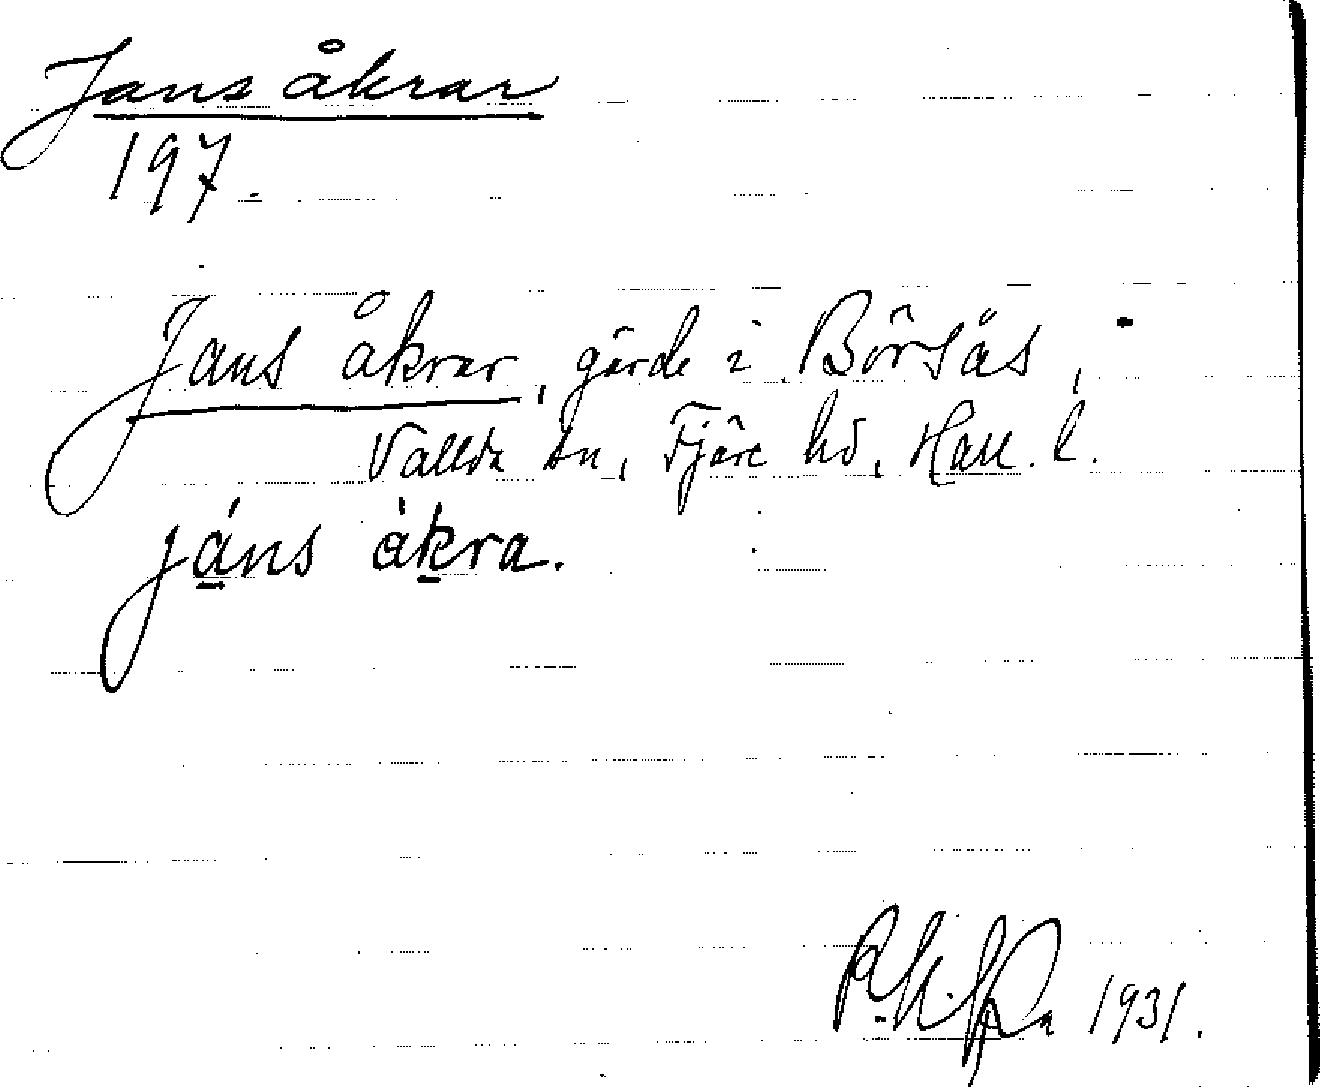 Jans åkrar
197.
Jans åkrar, gärde i Börsås,
Vallda sn, Fjäre hd, Hall. l.
jáns åkra.
1931.